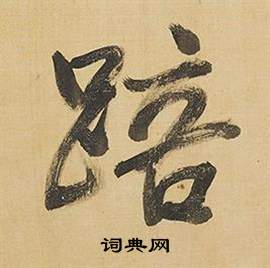 踣
词典网